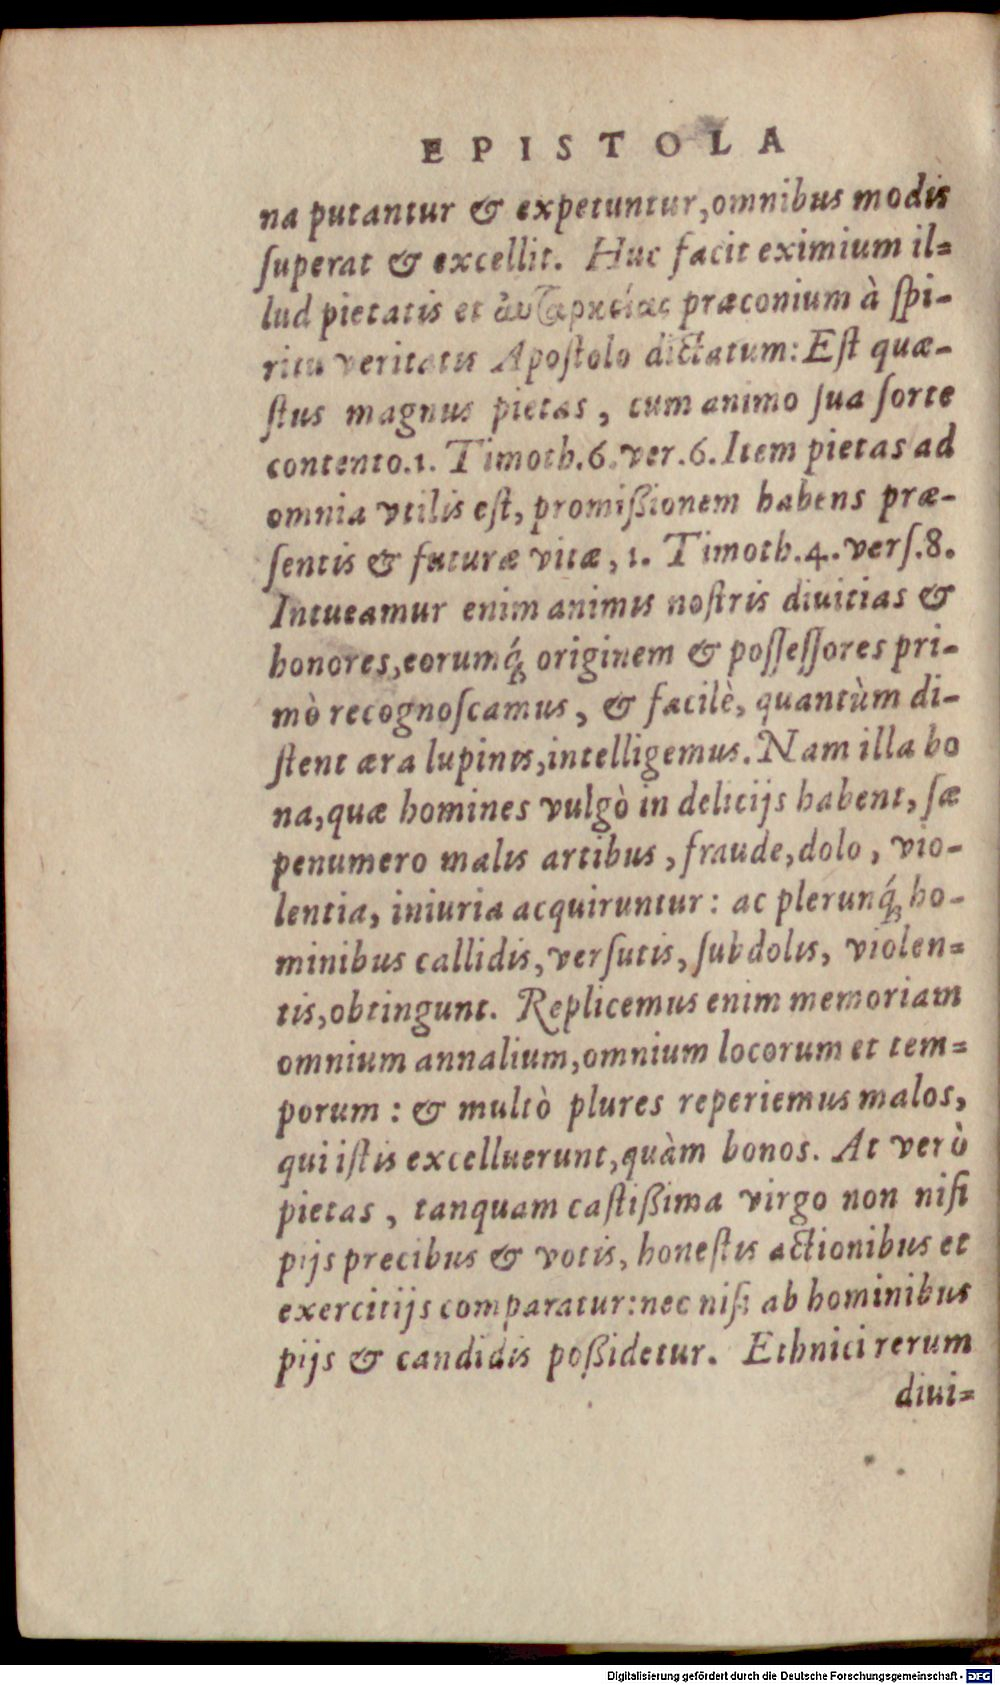 EPISTOLA
na putantur & expetuntur, omnibus modis
ſuperat & excellit. Huc facit eximium il=
lud pietatis et ἀυταρκείας præconium à ſpi-
ritu veritatis Apoſtolo dictatum: Eſt quæ-
ſtus magnus pietas, cum animo ſua ſorte
contento. 1. Timoth. 6. ver. 6. Item pietas ad
omnia vtilis eſt, promißionem habens præ-
ſentis & futuræ vitæ, 1. Timoth. 4. verſ. 8.
Intueamur enim animis noſtris diuitias &
honores, eorumq́ꝫ originem & poſſeſſores pri-
mò recognoſcamus, & facilè, quantùm di-
ſtent æra lupinis, intelligemus. Nam illa bo
na, quæ homines vulgò in delicijs habent, ſæ
penumero malis artibus, fraude, dolo, vio-
lentia, iniuria acquiruntur: ac plerunq́ꝫ ho-
minibus callidis, verſutis, ſubdolis, violen=
tis, obtingunt. Replicemus enim memoriam
omnium annalium, omnium locorum et tem=
porum: & multò plures reperiemus malos,
qui iſtis excelluerunt, quàm bonos. At verò
pietas, tanquam caſtißima virgo non niſi
pijs precibus & votis, honeſtis actionibus et
exercitijs comparatur: nec niſi ab hominibus
pijs & candidis poßidetur. Ethnici rerum
diui=
Digitalisierung gefördert durch die Deutsche Forschungsgemeinschaft - DFG